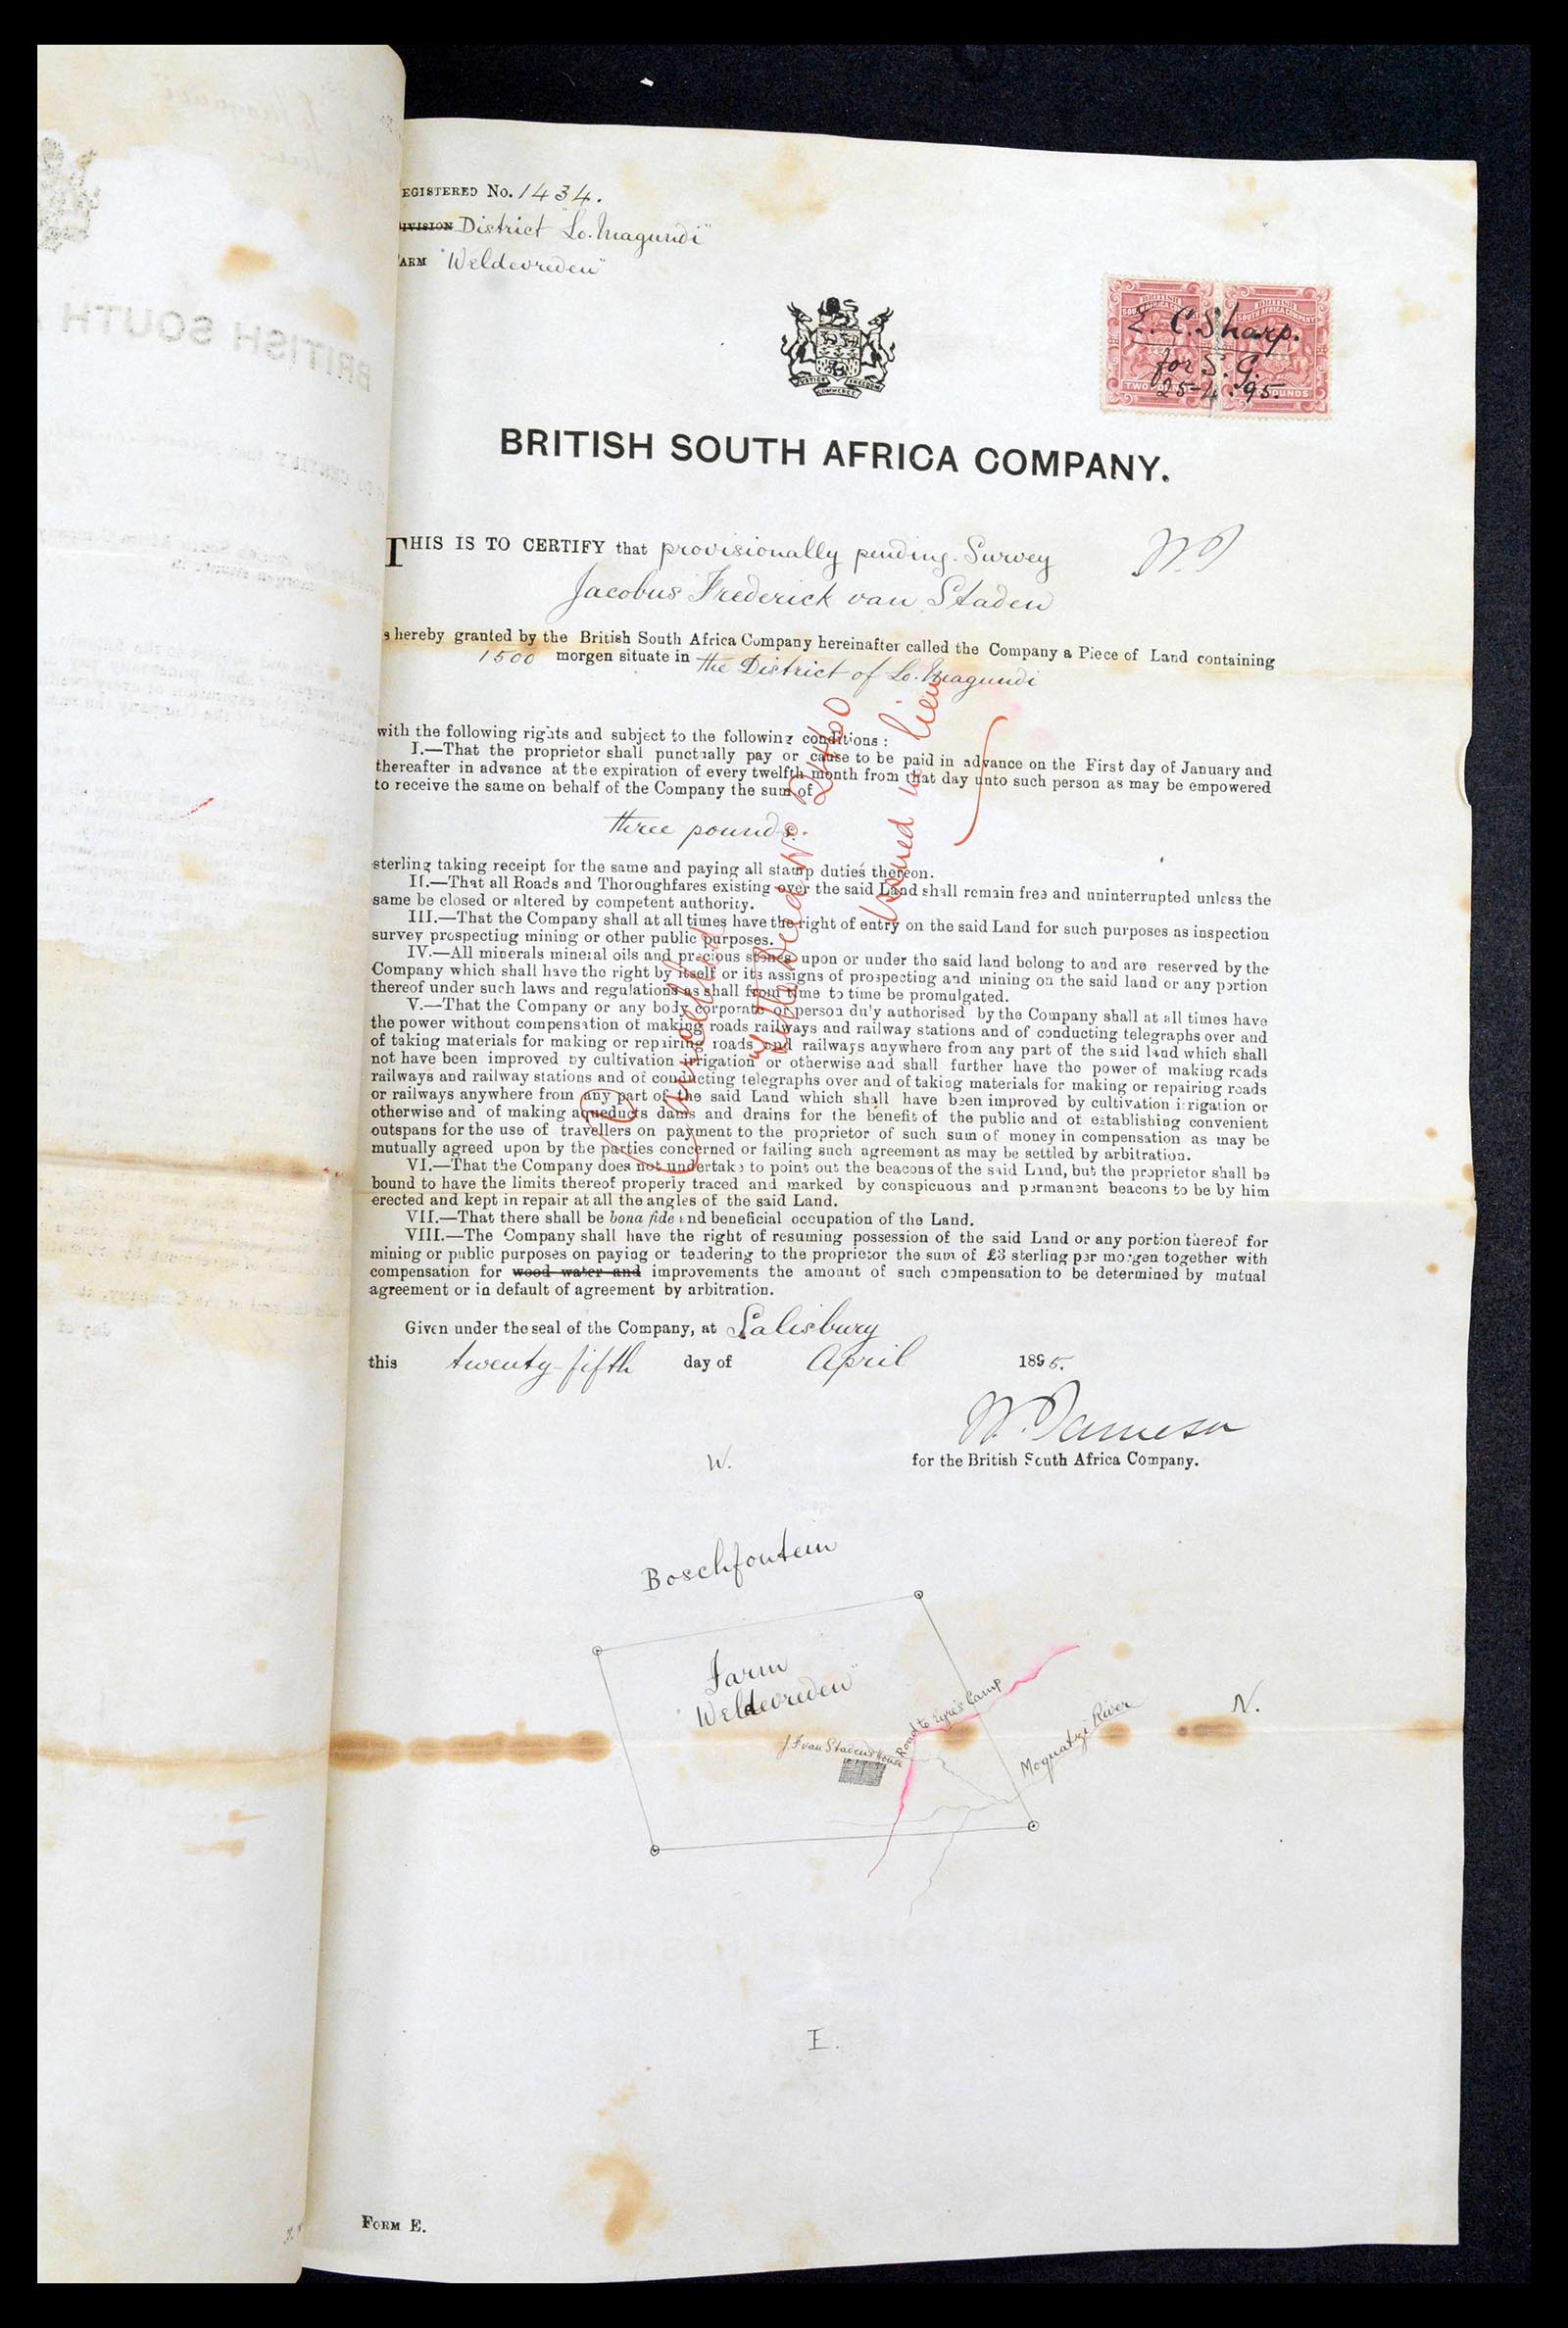 EGISTERED No. 1434.
IVISION District "Lo. Magundi"
ARM "Weldevreden"
JUSTICE FREEDOM
COMMERCE
BRITISH
SOUTH AFRICA COMPANY
TWO POUNDS
BRITISH
SOUTH AFRICA COMPANY
POUNDS
E. C. Sharp.
for S. G.
25-4.95.
BRITISH SOUTH AFRICA COMPANY.
THIS IS TO CERTIFY that provisionally pending Survey
W.J
Jacobus Frederick van Staden
s hereby granted by the British South Africa Company hereinafter called the Company a Piece of Land containing
1500 morgen situate in the District of Lo. Magundi
with the following rights and subject to the following conditions :
I.—That the proprietor shall punctually pay or cause to be paid in advance on the First day of January and
thereafter in advance at the expiration of every twelfth month from that day unto such person as may be empowered
to receive the same on behalf of the Company the sum of
three pounds.
sterling taking receipt for the same and paying all stamp duties thereon.
II.—That all Roads and Thoroughfares existing over the said Land shall remain free and uninterrupted unless the
same be closed or altered by competent authority.
III.—That the Company shall at all times have the right of entry on the said Land for such purposes as inspection
survey prospecting mining or other public purposes.
IV.—All minerals mineral oils and precious stones upon or under the said land belong to and are reserved by the
Company which shall have the right by itself or its assigns of prospecting and mining on the said land or any portion
thereof under such laws and regulations as shall from time to time be promulgated.
V.—That the Company or any body corporate or person duly authorised by the Company shall at all times have
the power without compensation of making roads railways and railway stations and of conducting telegraphs over and
of taking materials for making or repairing roads and railways anywhere from any part of the said land which shall
not have been improved by cultivation irrigation or otherwise and shall further have the power of making roads
railways and railway stations and of conducting telegraphs over and of taking materials for making or repairing roads
or railways anywhere from any part of the said Land which shall have been improved by cultivation irrigation or
otherwise and of making aqueducts dams and drains for the benefit of the public and of establishing convenient
outspans for the use of travellers on payment to the proprietor of such sum of money in compensation as may be
mutually agreed upon by the parties concerned or failing such agreement as may be settled by arbitration.
VI.—That the Company does not undertake to point out the beacons of the said Land, but the proprietor shall be
bound to have the limits thereof properly traced and marked by conspicuous and permanent beacons to be by him
erected and kept in repair at all the angles of the said Land.
VII.—That there shall be bona fide and beneficial occupation of the Land.
VIII.—The Company shall have the right of resuming possession of the said Land or any portion thereof for
mining or public purposes on paying or tendering to the proprietor the sum of £3 sterling per morgen together with
compensation for wood water and improvements the amount of such compensation to be determined by mutual
agreement or in default of agreement by arbitration.
Cancelled
issued in lieu
Given under the seal of the Company, at Salisbury
this twenty-fifth day of April 1895.
W. Jameson
for the British South Africa Company.
W.
Boschfontein
Farm
"Weldevreden"
J. F van Staden's House
Road to Eyre's Camp
Moquatzi River
N.
E.
FORM E.
BRITISH SOUTH